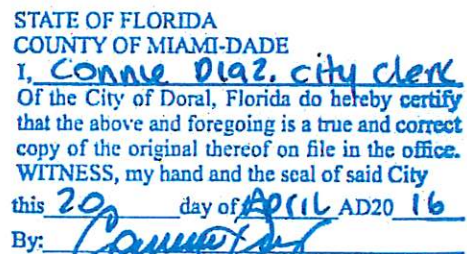 STATE OF FLORIDA
COUNTY OF MIAMI-DADE
I, Connie Diaz, city clerk
Of the City of Doral, Florida do hereby certify
that the above and foregoing is a true and correct
copy of the original thereof on file in the office.
WITNESS, my hand and the seal of said City
this 20 day of APRIL AD20 16
By: